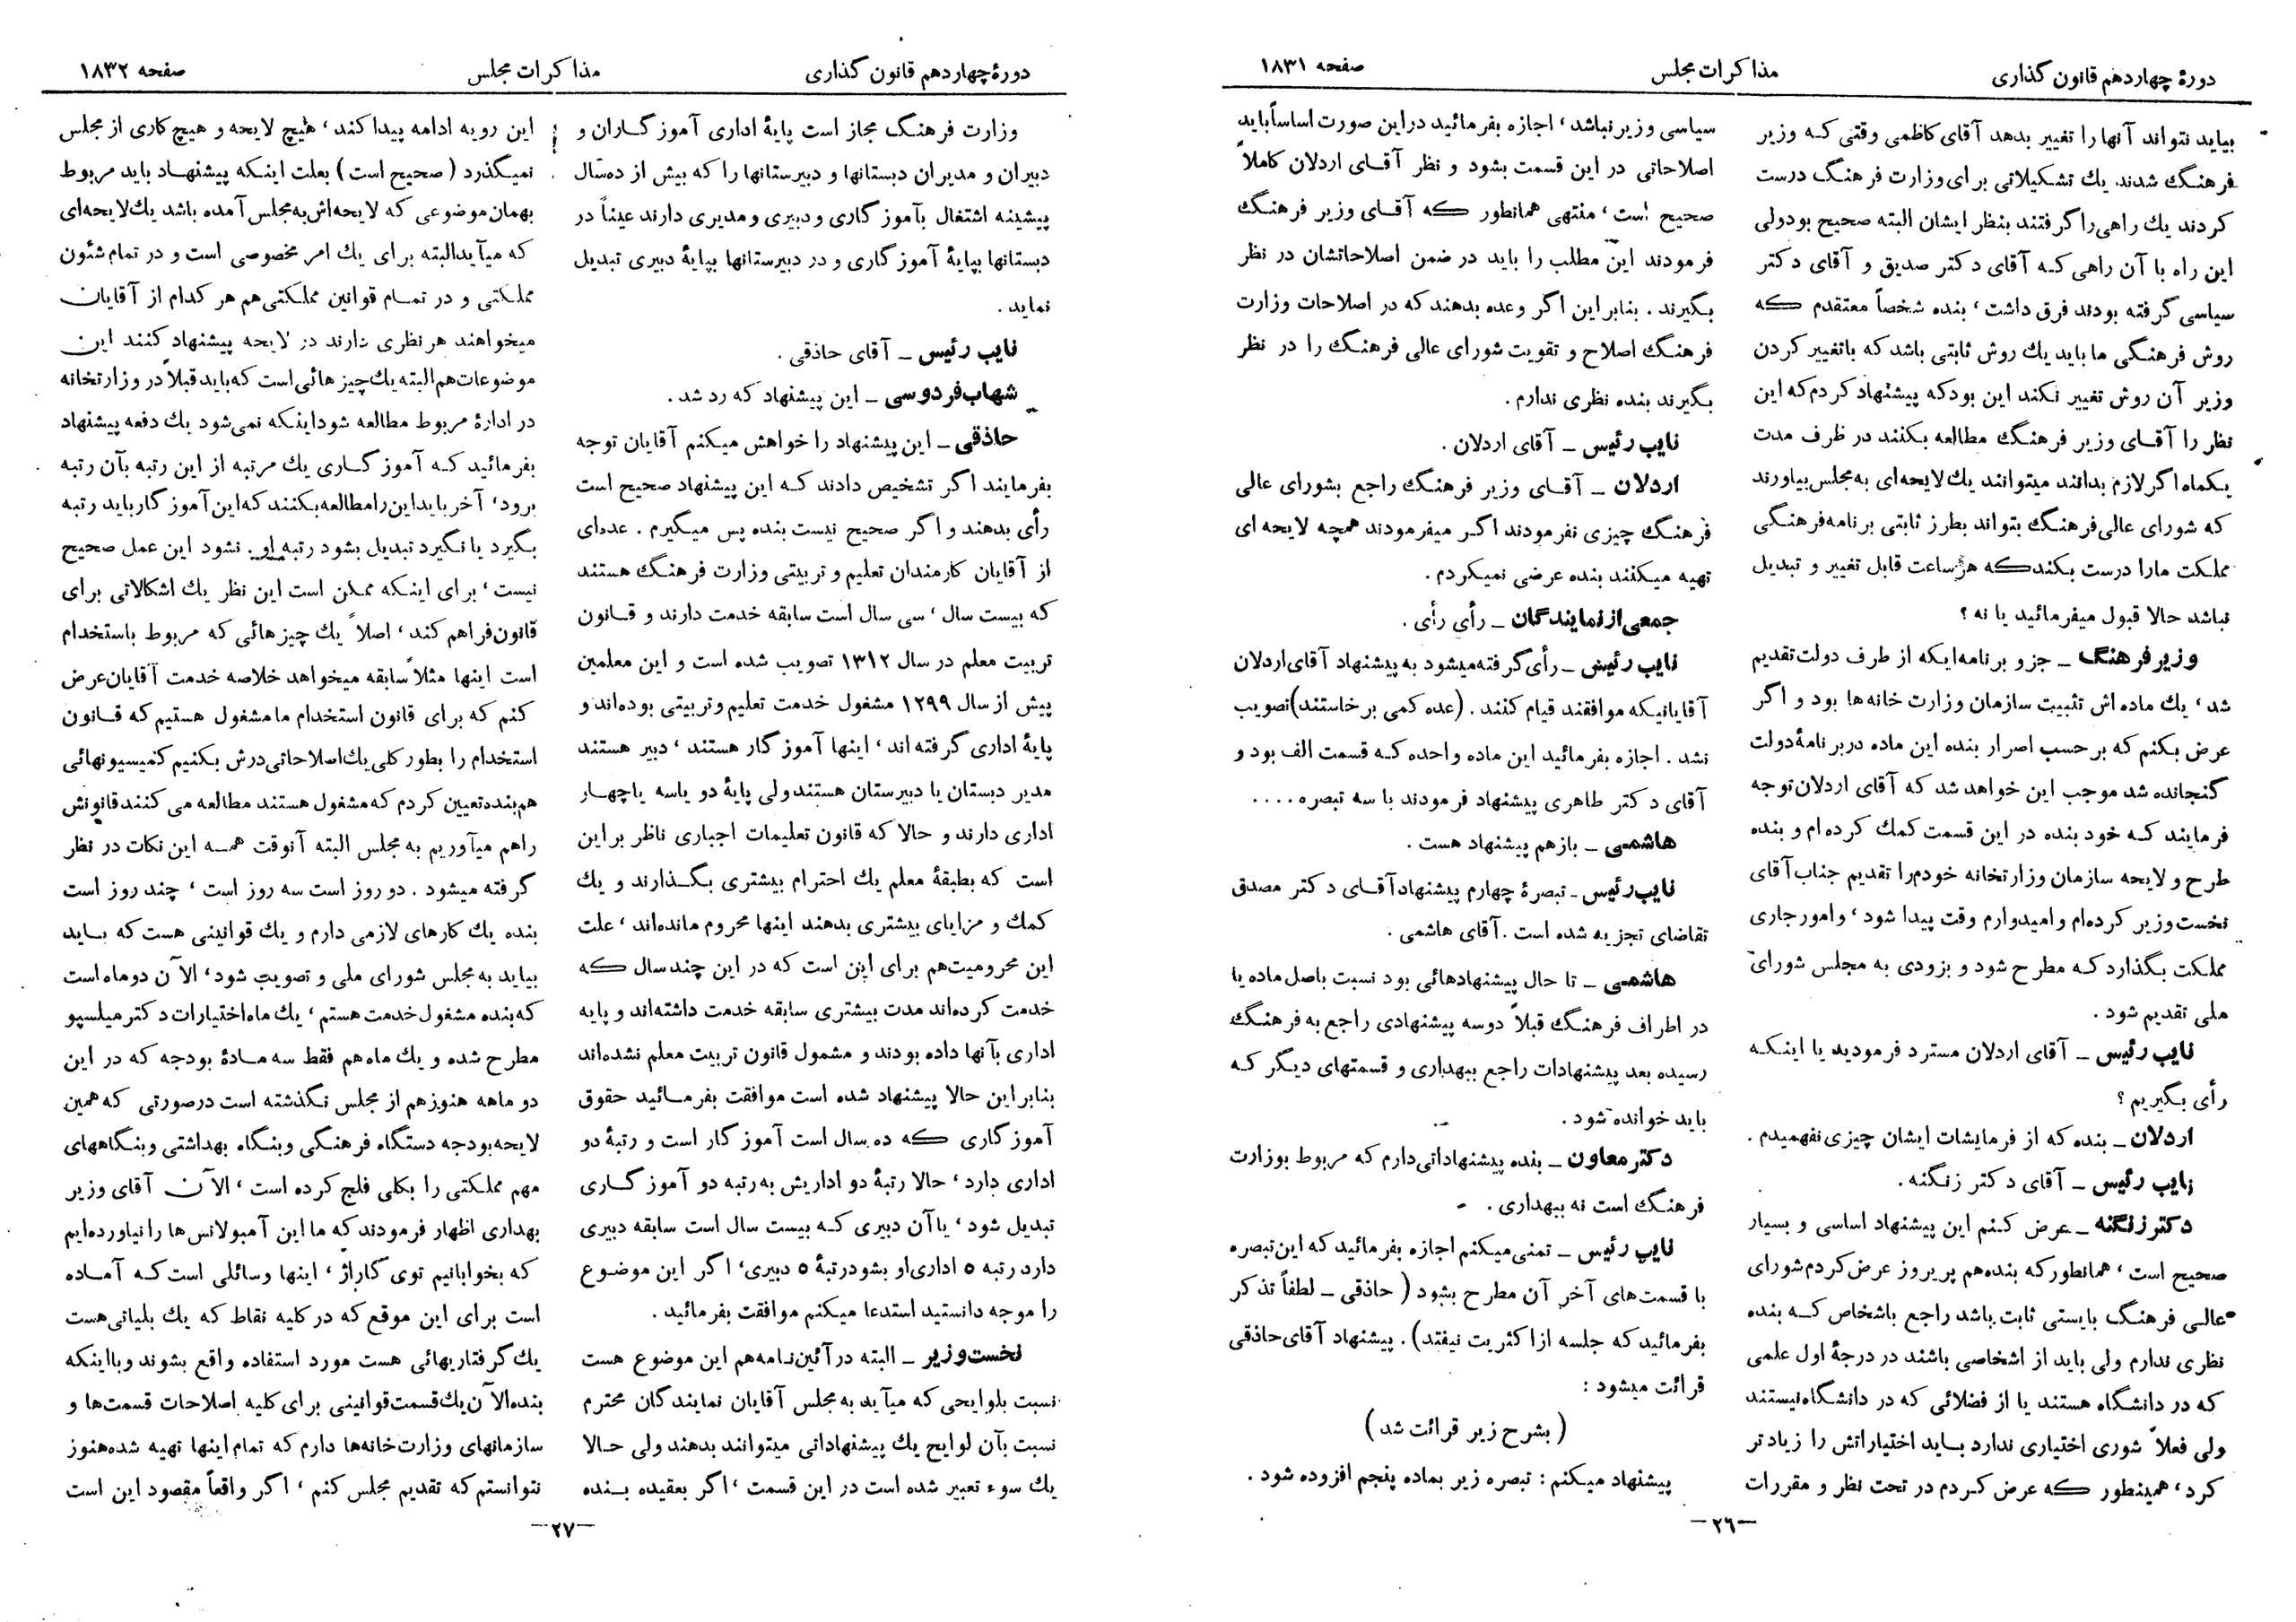 دورهٔ چهاردهم قانون گذاری
مذاکرات مجلس
صفحه ۱۸۳۱
بیاید نتواند آنها را تغییر بدهد آقای کاظمی وقتی که وزیر
فرهنگ شدند یك تشکیلاتی برای وزارت فرهنگ درست
کردند یك راهی را گرفتند بنظر ایشان البته صحیح بود ولی
این راه با آن راهی که آقای دکتر صدیق و آقای دکتر
سیاسی گرفته بودند فرق داشت ، بنده شخصاً معتقدم که
روش فرهنگی ما باید یك روش ثابتی باشد که با تغییر کردن
وزیر آن روش تغییر نکند این بود که پیشنهاد کردم که این
نظر را آقای وزیر فرهنگ مطالعه بکنند در ظرف مدت
یکماه اگر لازم بدانند میتوانند یك لایحه‌ای به مجلس بیاورند
که شورای عالی فرهنگ بتواند بطرز ثابتی برنامه فرهنگی
مملکت ما را درست بکند که هر ساعت قابل تغییر و تبدیل
نباشد حالا قبول میفرمائید یا نه ؟
وزیر فرهنگ ـ جزو برنامه‌ایکه از طرف دولت تقدیم
شد ، یك ماده اش تثبیت سازمان وزارت خانه‌ها بود و اگر
عرض بکنم که بر حسب اصرار بنده این ماده در برنامهٔ دولت
گنجانده شد موجب این خواهد شد که آقای اردلان توجه
فرمایند که خود بنده در این قسمت کمك کرده ام و بنده
طرح و لایحه سازمان وزارتخانه خودم را تقدیم جناب آقای
نخست وزیر کرده‌ام و امیدوارم وقت پیدا شود ، و امور جاری
مملکت بگذارد که مطرح شود و بزودی به مجلس شورای
ملی تقدیم شود .
نایب رئیس ـ آقای اردلان مسترد فرمودید یا اینکه
رأی بگیریم ؟
اردلان ـ بنده که از فرمایشات ایشان چیزی نفهمیدم .
نایب رئیس ـ آقای دکتر زنگنه .
دکتر زنگنه ـ عرض کنم این پیشنهاد اساسی و بسیار
صحیح است ، همانطور که بنده هم پریروز عرض کردم شورای
عالی فرهنگ بایستی ثابت باشد راجع باشخاص که بنده
نظری ندارم ولی باید از اشخاصی باشند در درجهٔ اول علمی
که در دانشگاه هستند یا از فضلائی که در دانشگاه نیستند
ولی فعلاً شوری اختیاری ندارد باید اختیاراتش را زیادتر
کرد ، همینطور که عرض کردم در تحت نظر و مقررات
سیاسی وزیر نباشد ، اجازه بفرمائید در این صورت اساساً باید
اصلاحاتی در این قسمت بشود و نظر آقای اردلان کاملاً
صحیح است ، منتهی همانطور که آقای وزیر فرهنگ
فرمودند این مطلب را باید در ضمن اصلاحاتشان در نظر
بگیرند . بنابر این اگر وعده بدهند که در اصلاحات وزارت
فرهنگ اصلاح و تقویت شورای عالی فرهنگ را در نظر
بگیرند بنده نظری ندارم .
نایب رئیس ـ آقای اردلان .
اردلان ـ آقای وزیر فرهنگ راجع بشورای عالی
فرهنگ چیزی نفرمودند اگر میفرمودند همچه لایحه ای
تهیه میکنند بنده عرضی نمیکردم .
جمعی از نمایندگان ـ رأی رأی .
نایب رئیس ـ رأی گرفته میشود به پیشنهاد آقای اردلان
آقایانیکه موافقند قیام کنند . (عده کمی برخاستند) تصویب
نشد . اجازه بفرمائید این ماده واحده که قسمت الف بود و
آقای دکتر طاهری پیشنهاد فرمودند با سه تبصره ....
هاشمی ـ باز هم پیشنهاد هست .
نایب رئیس ـ تبصرهٔ چهارم پیشنهاد آقای دکتر مصدق
تقاضای تجزیه شده است . آقای هاشمی .
هاشمی ـ تا حال پیشنهادهائی بود نسبت باصل ماده یا
در اطراف فرهنگ قبلاً دو سه پیشنهادی راجع به فرهنگ
رسیده بعد پیشنهادات راجع ببهداری و قسمتهای دیگر که
باید خوانده شود .
دکتر معاون ـ بنده پیشنهاداتی دارم که مربوط بوزارت
فرهنگ است نه ببهداری .
نایب رئیس ـ تمنی میکنم اجازه بفرمائید که این تبصره
با قسمت‌های آخر آن مطرح بشود ( حاذقی ـ لطفاً تذکر
بفرمائید که جلسه از اکثریت نیفتد) . پیشنهاد آقای حاذقی
قرائت میشود :
( بشرح زیر قرائت شد )
پیشنهاد میکنم : تبصره زیر بماده پنجم افزوده شود .
ـ۲٦ـ
دورهٔ چهاردهم قانون گذاری
مذاکرات مجلس
صفحه ۱۸۳۲
وزارت فرهنگ مجاز است پایهٔ اداری آموزگاران و
دبیران و مدیران دبستانها و دبیرستانها را که بیش از ده سال
پیشینه اشتغال بآموزگاری و دبیری و مدیری دارند عیناً در
دبستانها بپایهٔ آموزگاری و در دبیرستانها بپایهٔ دبیری تبدیل
نماید .
نایب رئیس ـ آقای حاذقی .
شهاب فردوسی ـ این پیشنهاد که رد شد .
حاذقی ـ این پیشنهاد را خواهش میکنم آقایان توجه
بفرمایند اگر تشخیص دادند که این پیشنهاد صحیح است
رأی بدهند و اگر صحیح نیست بنده پس میگیرم . عده‌ای
از آقایان کارمندان تعلیم و تربیتی وزارت فرهنگ هستند
که بیست سال ، سی سال است سابقه خدمت دارند و قانون
تربیت معلم در سال ۱۳۱۲ تصویب شده است و این معلمین
پیش از سال ۱۲۹۹ مشغول خدمت تعلیم و تربیتی بوده‌اند و
پایهٔ اداری گرفته اند ، اینها آموزگار هستند ، دبیر هستند
مدیر دبستان یا دبیرستان هستند ولی پایهٔ دو یا سه یا چهار
اداری دارند و حالا که قانون تعلیمات اجباری ناظر بر این
است که بطبقهٔ معلم یك احترام بیشتری بگذارند و یك
کمك و مزایای بیشتری بدهند اینها محروم مانده‌اند ، علت
این محرومیت هم برای این است که در این چند سال که
خدمت کرده‌اند مدت بیشتری سابقه خدمت داشته‌اند و پایه
اداری بآنها داده بودند و مشمول قانون تربیت معلم نشده‌اند
بنابر این حالا پیشنهاد شده است موافقت بفرمائید حقوق
آموزگاری که ده سال است آموزگار است و رتبهٔ دو
اداری دارد ، حالا رتبهٔ دو اداریش به رتبه دو آموزگاری
تبدیل شود ، یا آن دبیری که بیست سال است سابقه دبیری
دارد رتبه ٥ اداری او بشود رتبهٔ ٥ دبیری ، اگر این موضوع
را موجه دانستید استدعا میکنم موافقت بفرمائید .
نخست وزیر ـ البته در آئین نامه هم این موضوع هست
نسبت بلوایحی که میآید به مجلس آقایان نمایندگان محترم
نسبت بآن لوایح یك پیشنهاداتی میتوانند بدهند ولی حالا
یك سوء تعبیر شده است در این قسمت ، اگر بعقیده بنده
این رویه ادامه پیدا کند ، هیچ لایحه و هیچ کاری از مجلس
نمیگذرد ( صحیح است ) بعلت اینکه پیشنهاد باید مربوط
بهمان موضوعی که لایحه‌اش به مجلس آمده باشد یك لایحه‌ای
که میآید البته برای یك امر مخصوصی است و در تمام شئون
مملکتی و در تمام قوانین مملکتی هم هر کدام از آقایان
میخواهند هر نظری دارند در لایحه پیشنهاد کنند این
موضوعات هم البته یك چیزهائی است که باید قبلاً در وزارتخانه
در ادارهٔ مربوط مطالعه شود اینکه نمی‌شود یك دفعه پیشنهاد
بفرمائید که آموزگاری یك مرتبه از این رتبه بآن رتبه
برود ، آخر باید این را مطالعه بکنند که این آموزگار باید رتبه
بگیرد یا نگیرد تبدیل بشود رتبه او . نشود این عمل صحیح
نیست ، برای اینکه ممکن است این نظر یك اشکالاتی برای
قانون فراهم کند ، اصلاً یك چیزهائی که مربوط باستخدام
است اینها مثلاً سابقه میخواهد خلاصه خدمت آقایان عرض
کنم که برای قانون استخدام ما مشغول هستیم که قانون
استخدام را بطور کلی یك اصلاحاتی درش بکنیم کمیسیونهائی
هم بنده تعیین کردم که مشغول هستند مطالعه می کنند قانونش
را هم میآوریم به مجلس البته آنوقت همه این نکات در نظر
گرفته میشود . دو روز است سه روز است ، چند روز است
بنده یك کارهای لازمی دارم و یك قوانینی هست که باید
بیاید به مجلس شورای ملی و تصویب شود ، الآن دو ماه است
که بنده مشغول خدمت هستم ، یك ماه اختیارات دکتر میلسپو
مطرح شده و یك ماه هم فقط سه مادهٔ بودجه که در این
دو ماهه هنوز هم از مجلس نگذشته است در صورتی که همین
لایحه بودجه دستگاه فرهنگی و بنگاه بهداشتی و بنگاههای
مهم مملکتی را بکلی فلج کرده است ، الآن آقای وزیر
بهداری اظهار فرمودند که ما این آمبولانس‌ها را نیاورده‌ایم
که بخوابانیم توی گاراژ ، اینها وسائلی است که آماده
است برای این موقع که در کلیه نقاط که یك بلیاتی هست
یك گرفتاریهائی هست مورد استفاده واقع بشوند و با اینکه
بنده الآن یك قسمت قوانینی برای کلیه اصلاحات قسمت‌ها و
سازمانهای وزارت خانه‌ها دارم که تمام اینها تهیه شده هنوز
نتوانستم که تقدیم مجلس کنم ، اگر واقعاً مقصود این است
ـ۲۷ـ